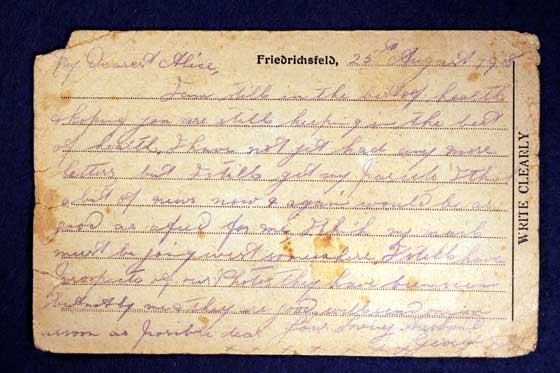 My Dearest Alice,
Friedrichsfeld, 25th August 1918
I am still in the best of health
& hoping you are still keeping in the best
of health, I have not yet had any more
letters but I still get my parcels I think
a bit of news now & again would be as
good as a feed for me I think my mail
must be going west somewhere I still have
prospects of our Photos they have been
they are
as soon as possible dear Your loving Husband
George
WRITE CLEARLY